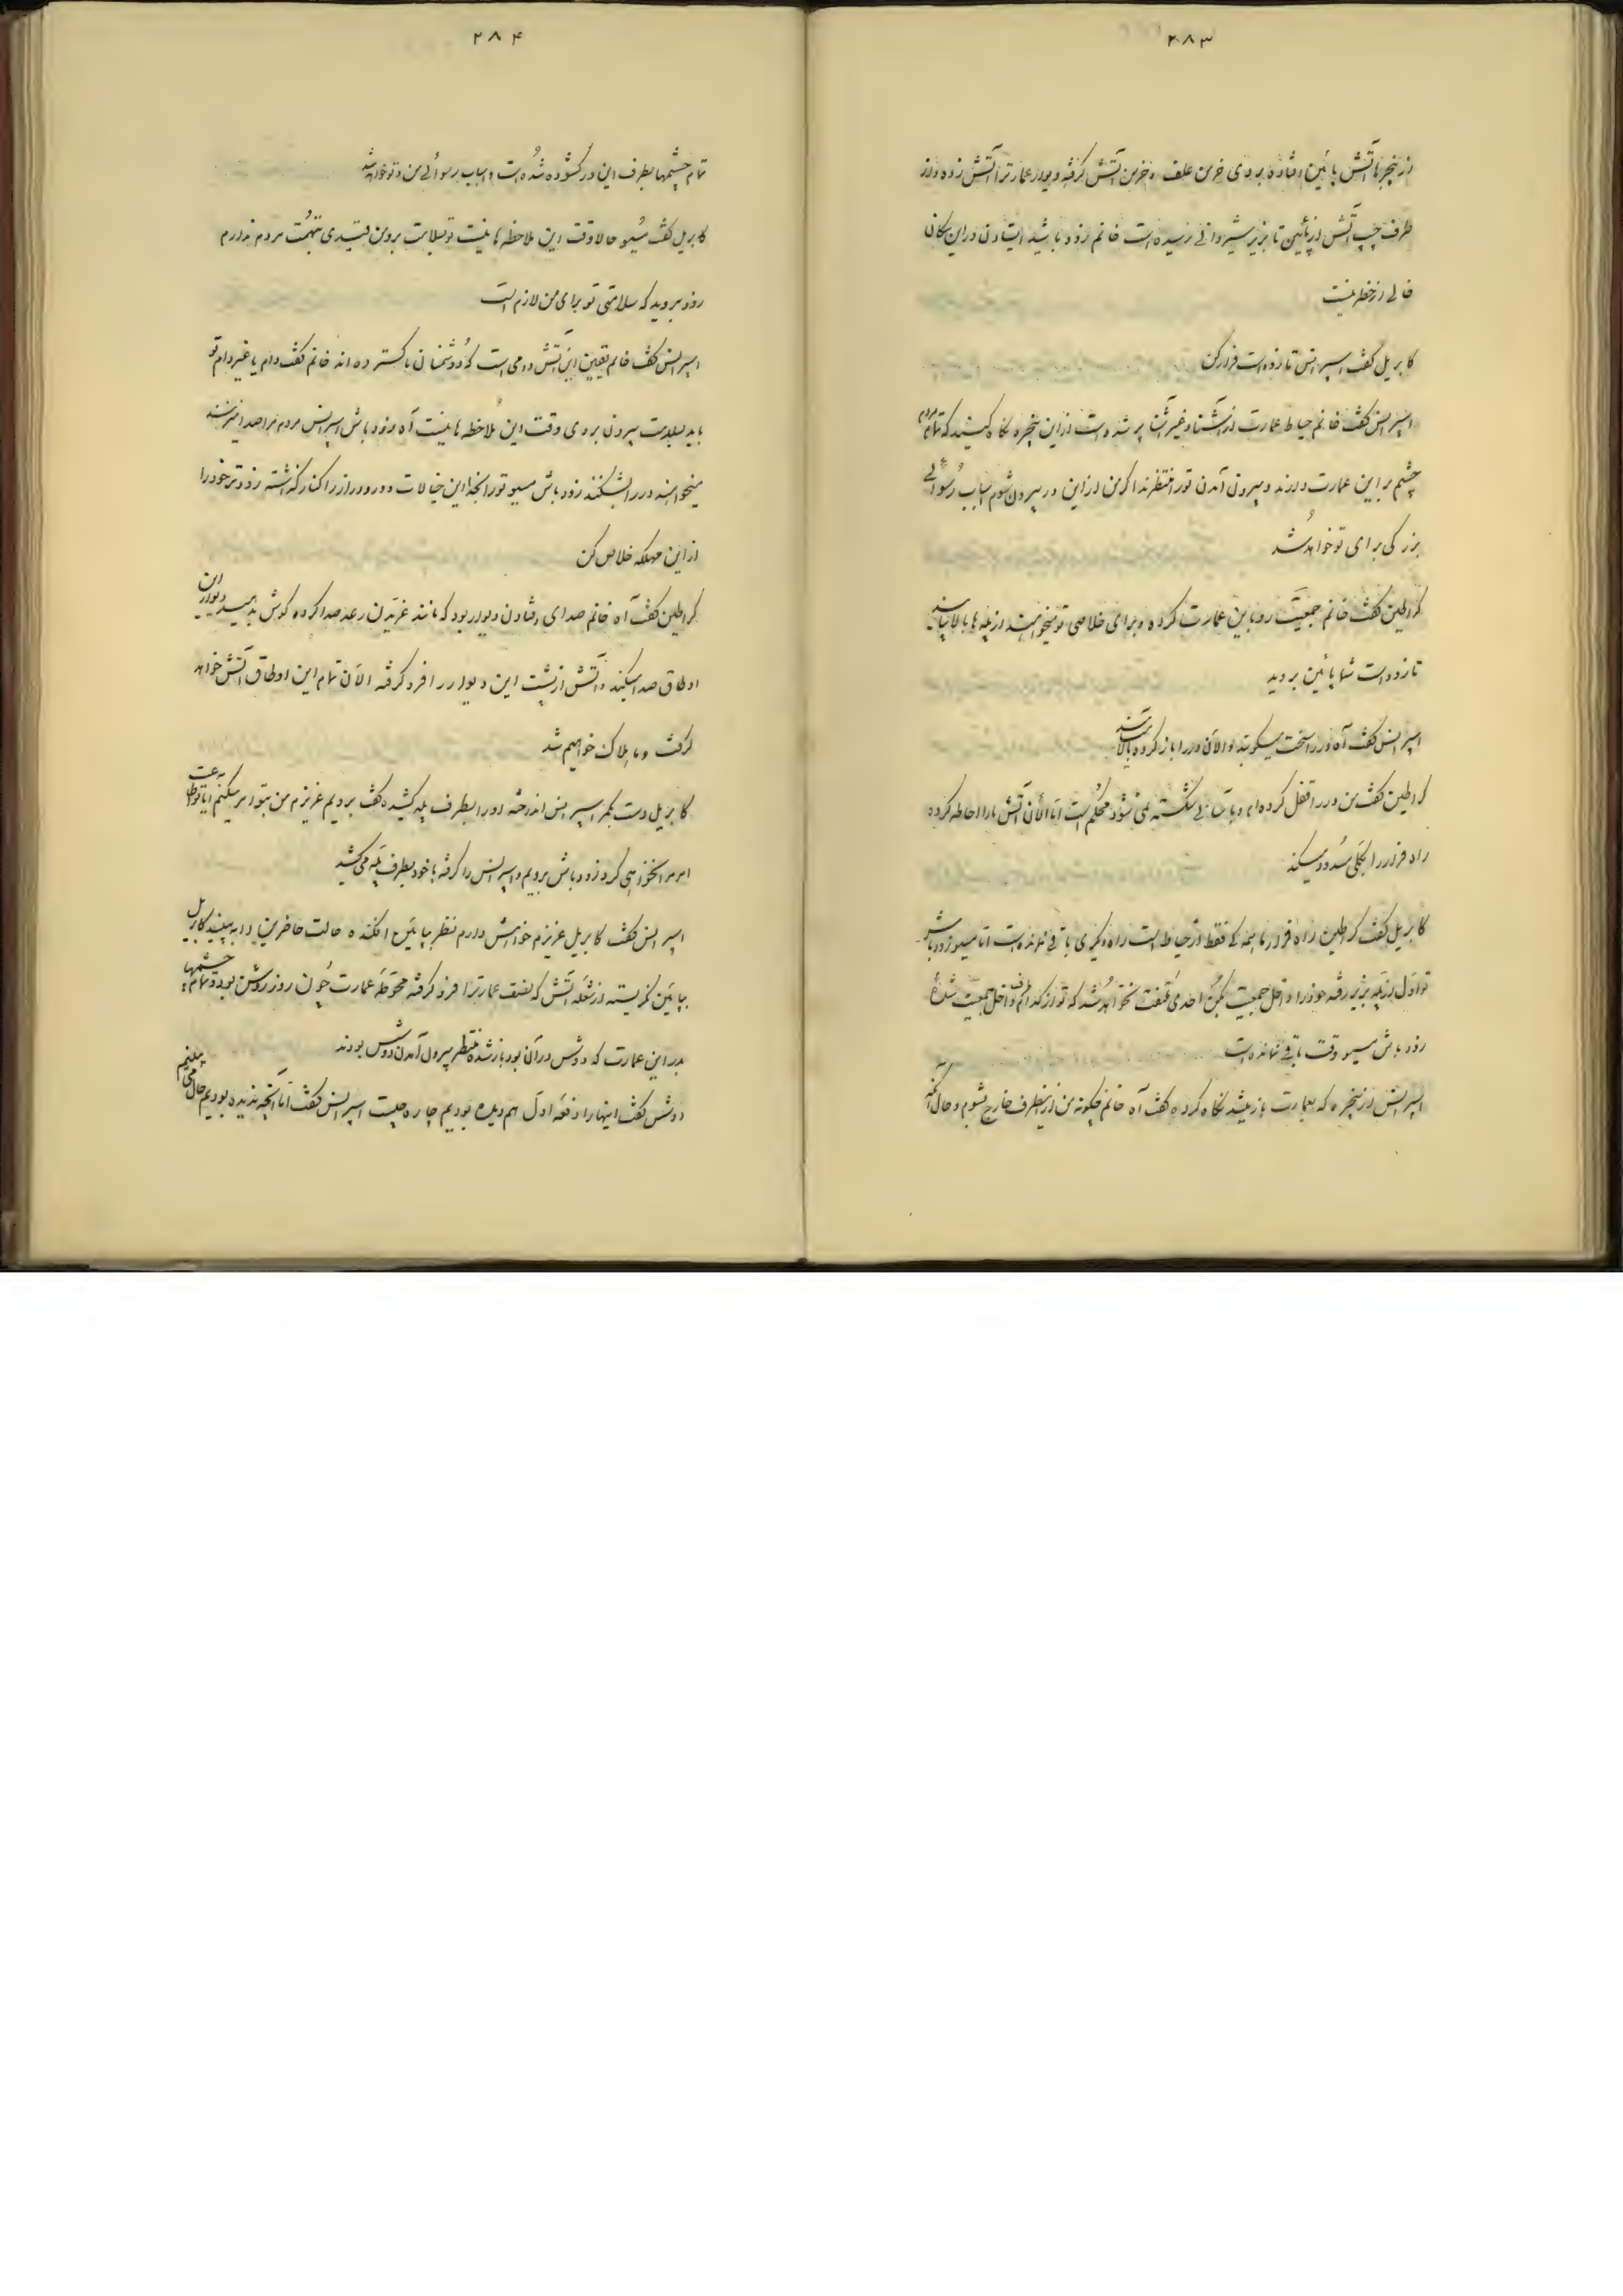 ۲۸۳
از پنجرها آتش پائین افتاده بروی خرمن علف و خرمن آتش گرفته دیوار عمارترا آتش زده و از
طرف چپ آتش از پائین تا بزیر شیروانی رسیده است خانم زود باشید ایستادن در این مکان
خالی از خطر نیست
کابریل کفت اسپرانس تا زود است فرار کن
اسپرانس کفت خانم حیاط عمارت از آشنا و غیر آشنا پر شده است از این پنجره نکاه کنید که تمام مردم
چشم بر این عمارت دارند و بیرون آمدن تو را منتظرند اکر من از این در بیرون شوم اسباب رسوائی
بزرکی برای تو خواهد شد
کراطین کفت خانم جمعیت رو باین عمارت کرده و برای خلاصی تو میخواهند از پله ها بالا بیایند
تا زود است شما پائین بروید
اسپرانس کفت آه در را سخت میکوبند والآن در را باز کرده بالا
کراطین کفت من در را قفل کرده ام و بآسانی شکسته نمی شود محکم است اما الآن آتش ما را احاطه کرده
راه فرار را بکلی مسدود میکند
کابریل کفت کراطین راه فرار ما فقط در حیاط است راه دیکری باقی نمانده است اما مسیو زود باش
تو اول از پله بزیر رفته خود را داخل جمعیت بکن احدی ملتفت نخواهد شد که تو از کدام طرف داخل جمعیت شدهٔ
زود باش مسیو وقت باقی نمانده است
اسپرانس از پنجره که بعمارت باز میشد نکاه کرده کفت آه خانم چکونه من از اینطرف خارج شوم و حال آنکه
۲۸۴
تمام چشمها بطرف این در کشوده شده است و اسباب رسوائی من و تو خواهد شد
کابریل کفت مسیو حالا وقت این ملاحظه ها نیست تو بسلامت برو من قیدی بتهمت مردم ندارم
زود بروید که سلامتی تو برای من لازم است
اسپرانس کفت خانم یقین این آتش دامی است که دشمنان ما کسترده اند خانم کفت دام یا غیر دام تو
باید بسلامت بیرون بروی وقت این ملاحظه ها نیست آه زود باش اسپرانس مردم مرا صدا میزنند
میخواهند در را بشکنند زود باش مسیو تو را بخدا این خیالات دور و دراز را کنار کذاشته زودتر خود را
از این مهلکه خلاص کن
کراطین کفت آه خانم صدای افتادن دیوار بود که مانند غریدن رعد صدا کرده کوش بدهید دیوار این
اوطاق صدا میکند و آتش از پشت این دیوار را فرو کرفته الآن تمام این اوطاق آتش خواهد
کرفت و ما هلاک خواهیم شد
کابریل دست بکمر اسپرانس انداخته او را بطرف پله کشیده کفت برویم عزیزم من بتو امر میکنم آیا تو اطاعت
امر مرا نخواهی کرد زود باش برویم و اسپرانس را کرفته با خود بطرف پله می کشید
اسپرانس کفت کابریل عزیزم خواهش دارم نظر بپائین افکنده حالت حاضرین را به بینید کابریل
بپائین نکریسته از شعله آتش که نصف عمارترا فرو کرفته محوطه عمارت چون روز روشن بود و تمام چشمها
بدر این عمارت که دوشس در آن بود باز شده منتظر بیرون آمدن دوشس بودند
دوشس کفت اینها را دفعه اول هم دیده بودیم چاره چیست اسپرانس کفت اما آنچه ندیده بودیم حال می بینیم